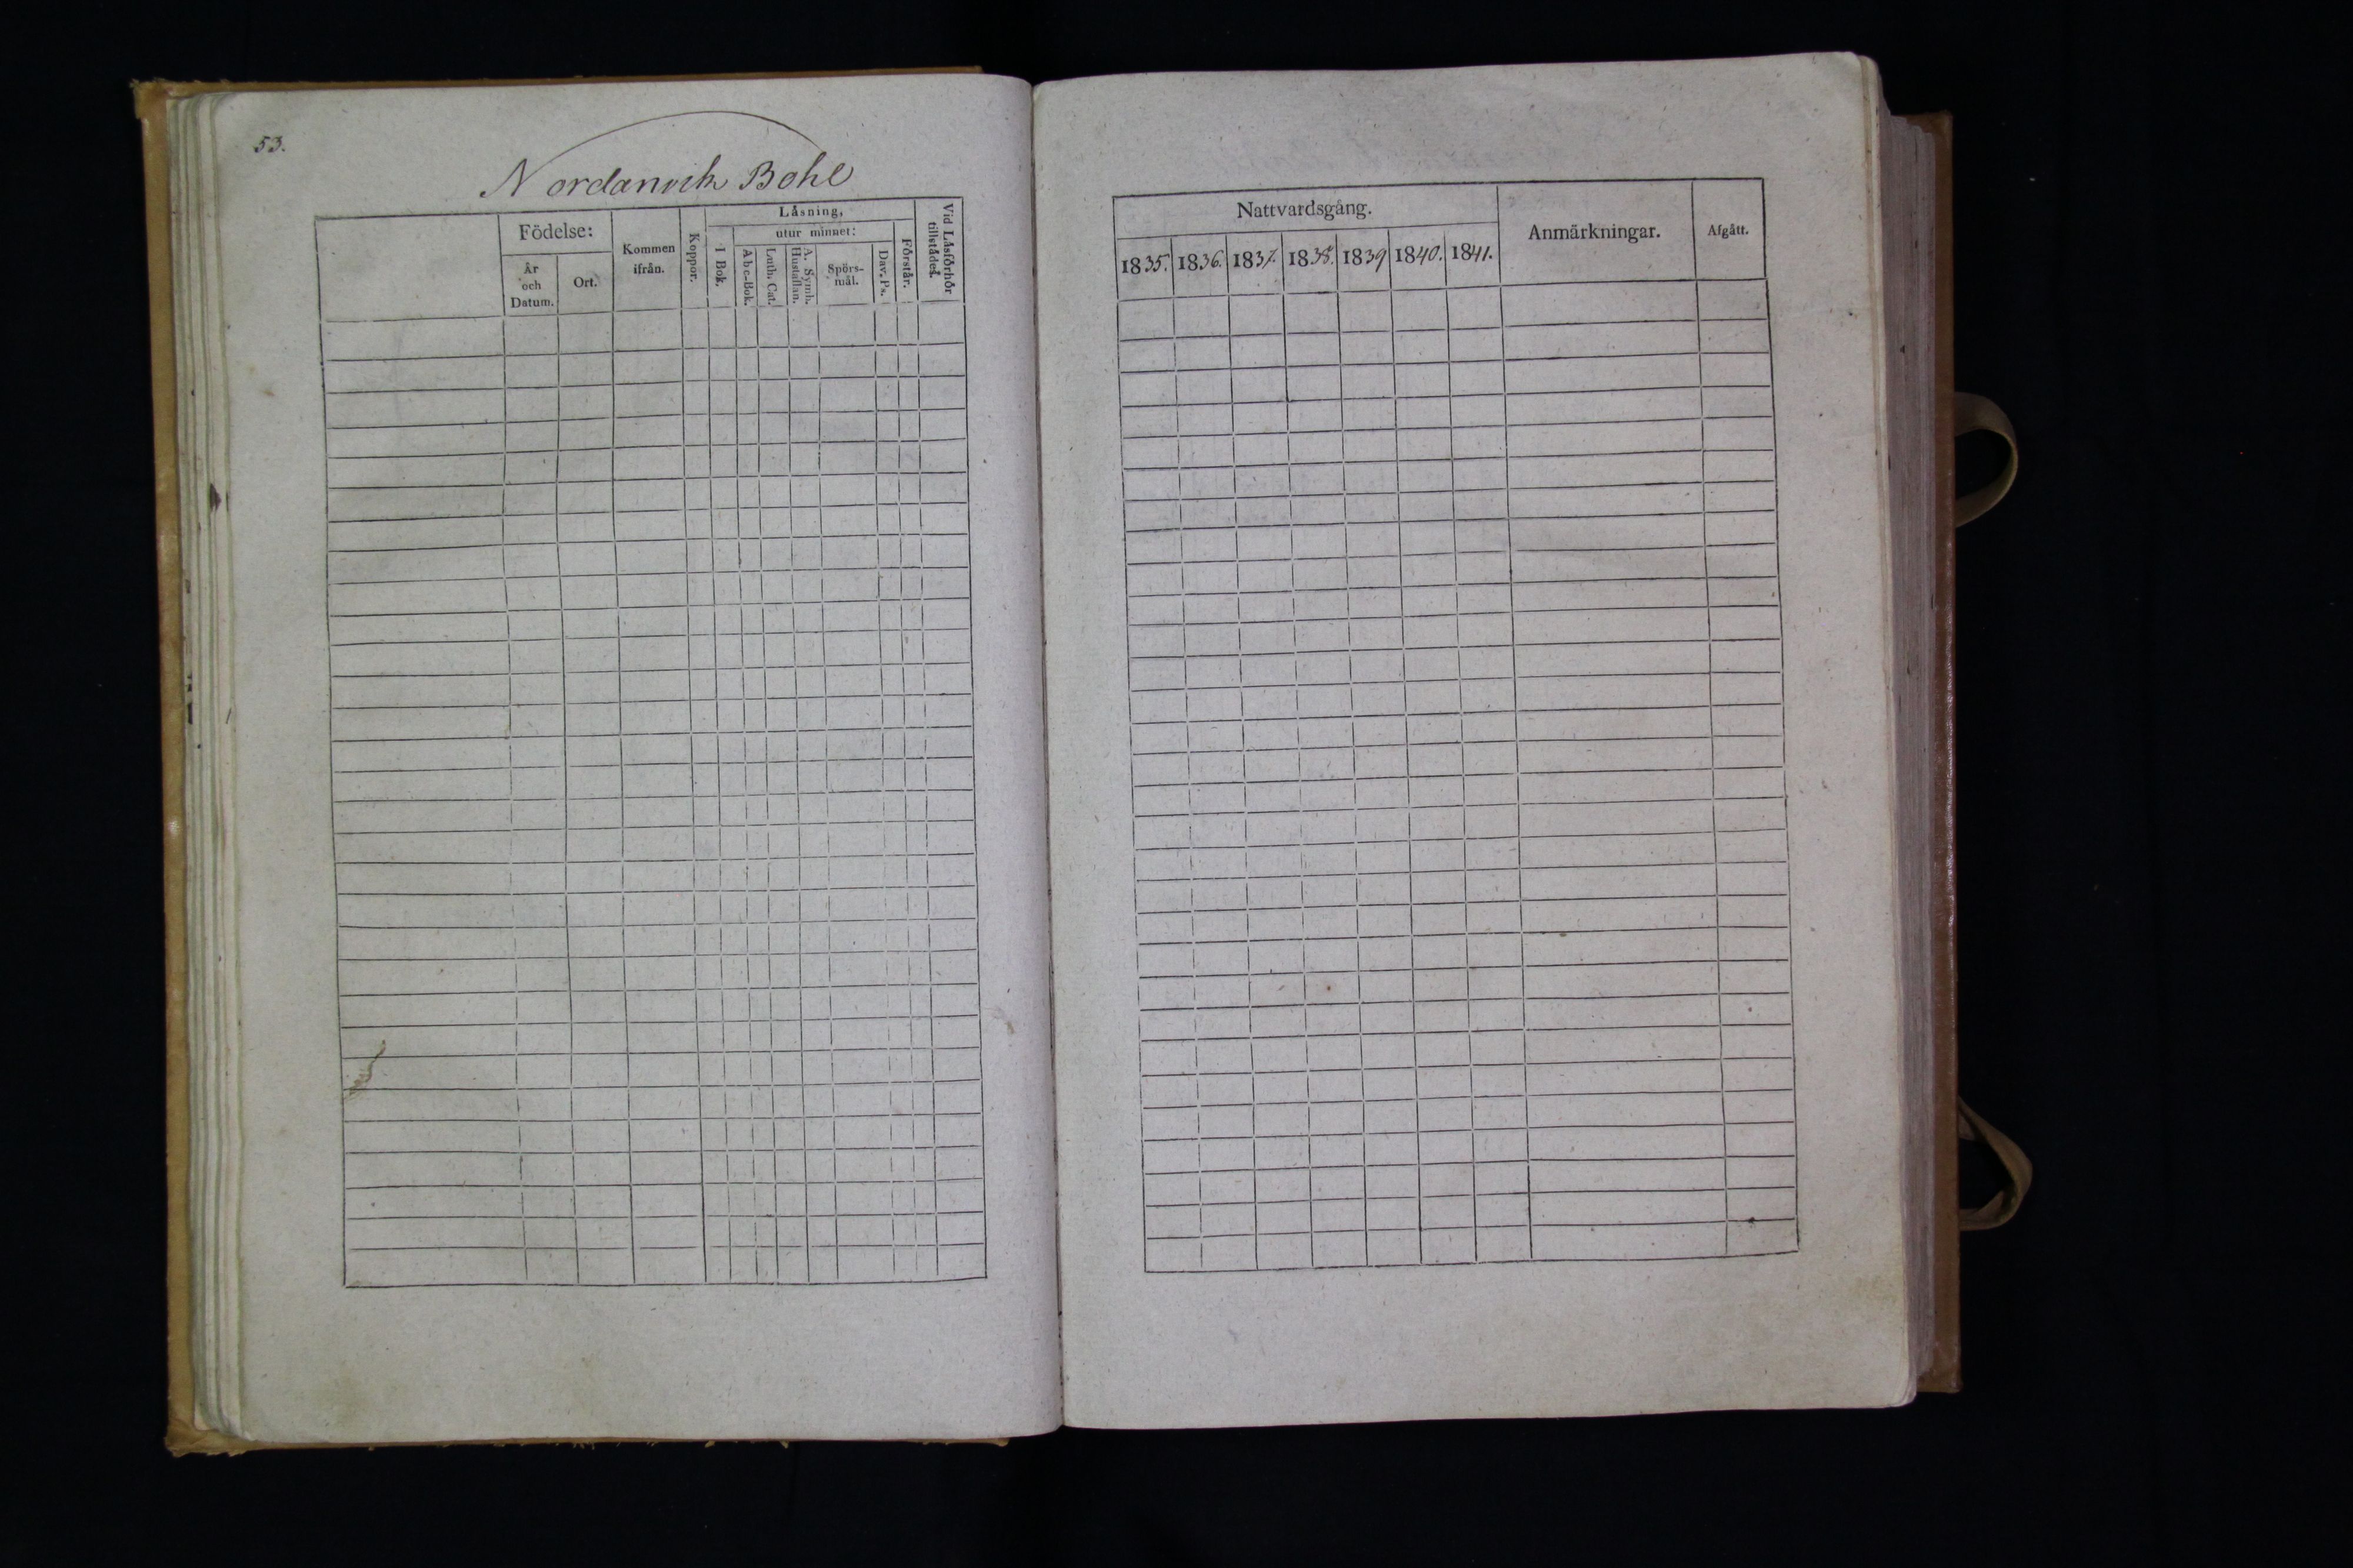 53.
Nordanvik Bohl
Födelse:
År
och
Datum.
Ort.
Kommen
ifrån.
Koppor.
Låsning,
I Bok.
utur minnet:
Abc-Bok.
Luth. Cat.
A. Symb.
Hustaflan.
Spörs-
mål.
Dav. Ps.
Förstår.
Vid Låsförhör
tillstådes.
Nattvardsgång.
1835. 1836. 1837. 1838. 1839 1840. 1841.
Anmärkningar.
Afgått.